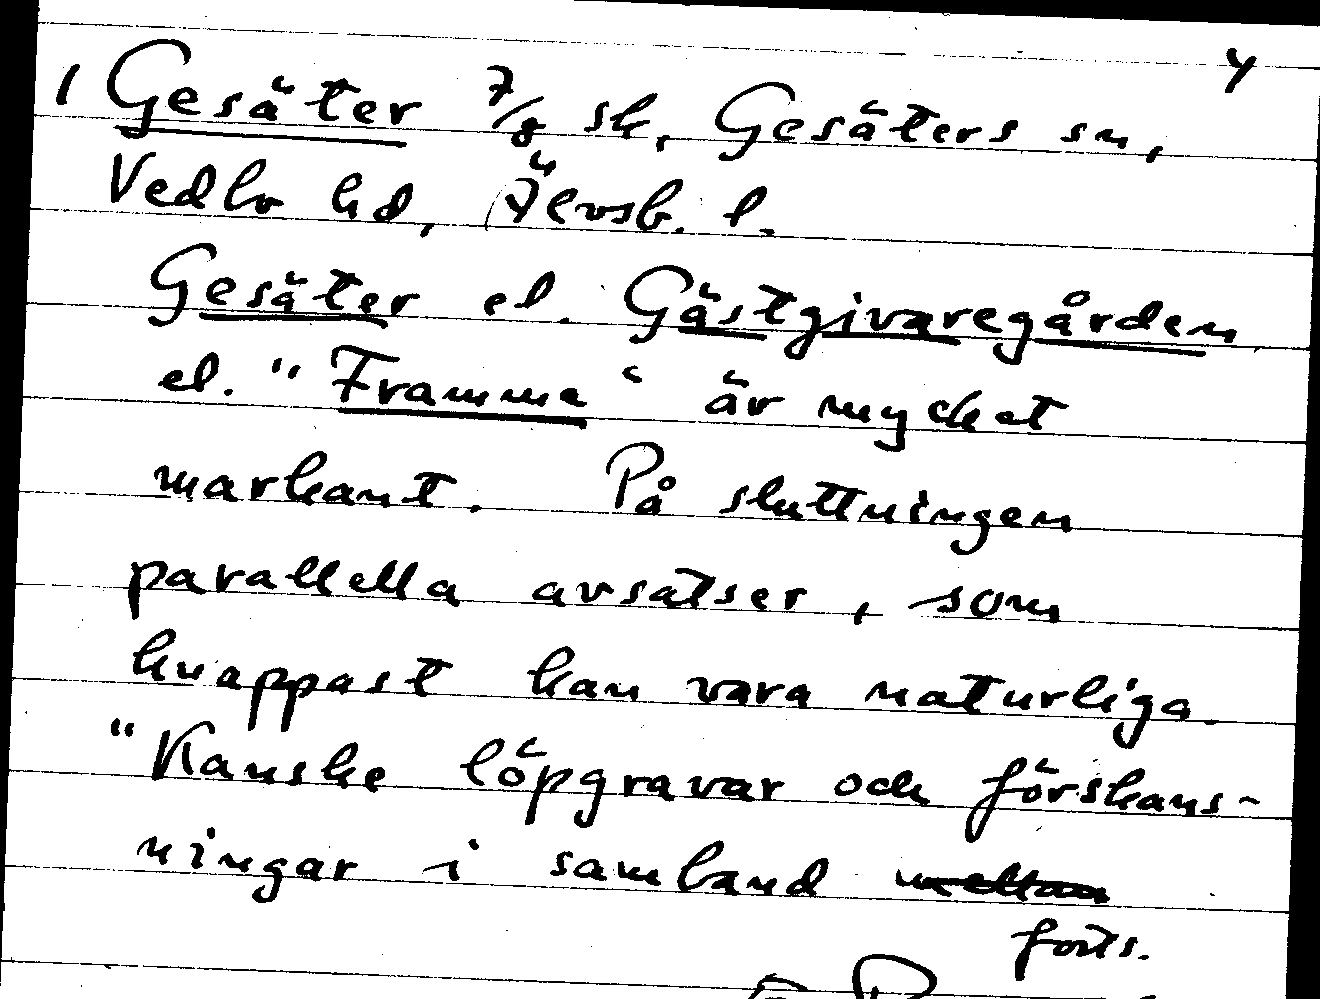 1 Gesäter 7/8 sk, Gesäters sn, 4
Vedbo hd, Älvsb. l.
Gesäter el. Gästgivaregården
el. "Framme" är mycket
markant. På sluttningen
parallella avsatser, som
knappast kan vara naturliga.
"Kanske löpgravar och förskans-
ningar i samband mellan
forts.